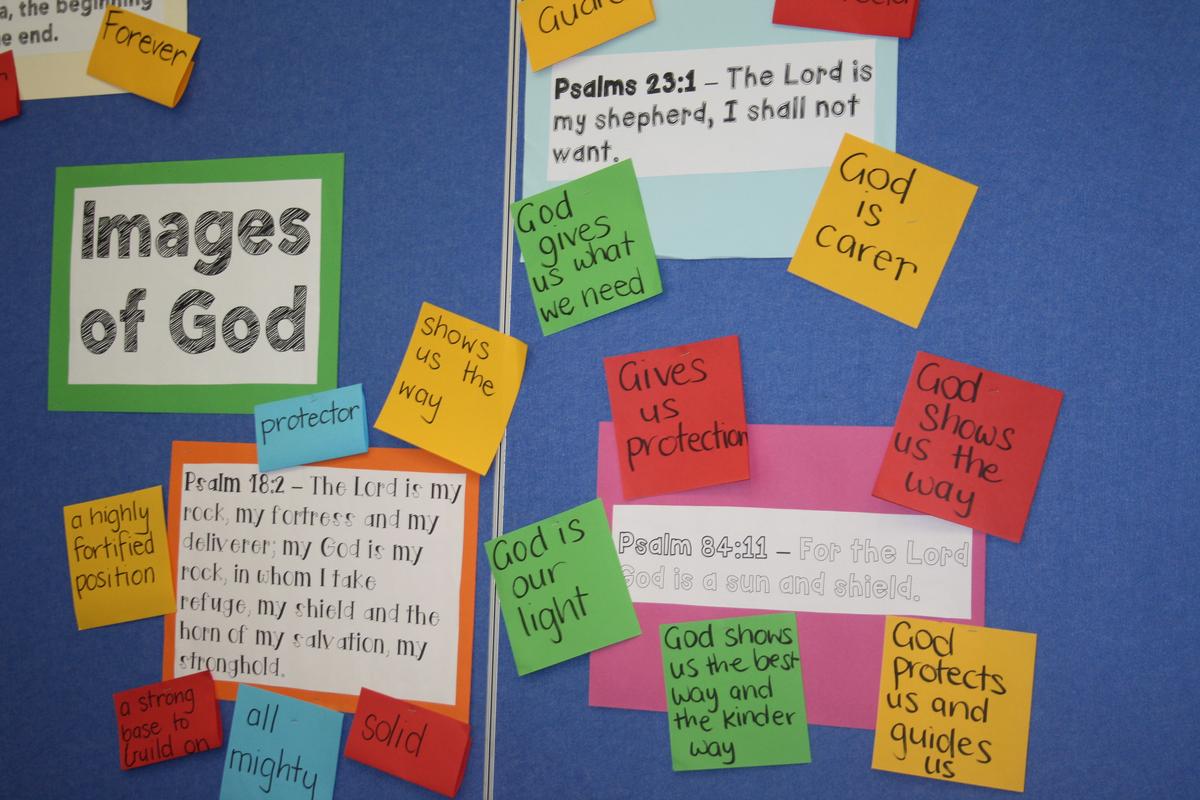 the beginning
the end.
Forever
Images
of God
protector
shows
us the
way
Psalm 18:2 – The Lord is my
rock, my fortress and my
deliverer; my God is my
rock, in whom I take
refuge, my shield and the
horn of my salvation, my
stronghold.
a highly
fortified
position
a strong
base to
build on
all
mighty
solid
Psalms 23:1 – The Lord is
my shepherd, I shall not
want.
God
gives
us what
we need
God
is
carer
Gives
us
protection
God
shows
us the
way
God is
our
light
Psalm 84:11 – For the Lord
God is a sun and shield.
God shows
us the best
way and
the kinder
way
God
protects
us and
guides
us